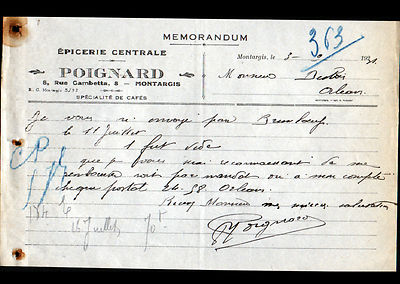 MEMORANDUM
ÉPICERIE CENTRALE
POIGNARD
8, Rue Gambetta, 8 — MONTARGIS
R. C. Montargis 5/72
SPÉCIALITÉ DE CAFÉS
363
Montargis, le 3 193
Monsieur
Orléans
Je vous ai envoyé par
le 11 Juillet
1 fut vide
que je vous serai reconnaissant de me
rembourser soit par mandat ou à mon compte
chèque postal 24-38 Orléans.
Recevez Monsieur mes salutations
Poignard
CP
16 Juillet 70